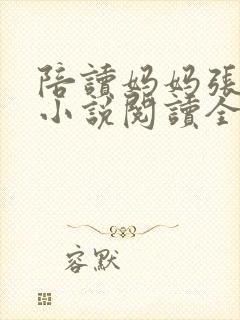 陪讀妈妈張
小說閱讀全
容默